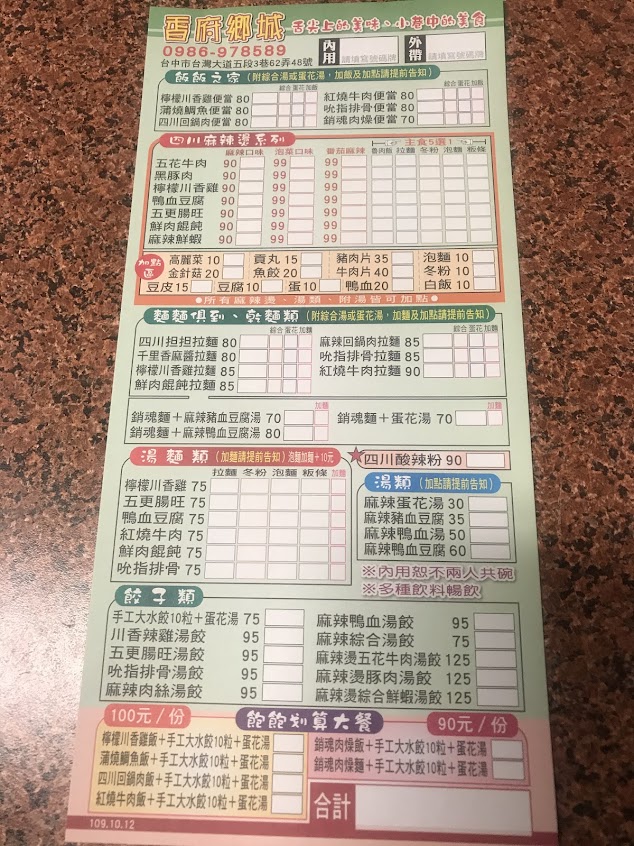 香府鄉城 舌尖上的美味、小巷中的美食
0986-978589
台中市台灣大道五段3巷62弄48號
內用 請填寫號碼牌 外帶 請填寫號碼牌
飯飯之家(附綜合湯或蛋花湯，加飯及加點請提前告知)
綜合 蛋花 加飯 綜合 蛋花 加飯
檸檬川香雞便當 80 紅燒牛肉便當 80
蒲燒鯛魚便當 80 吮指排骨便當 80
四川回鍋肉便當 80 銷魂肉燥便當 70
四川麻辣燙系列 主食5選1
麻辣口味 泡菜口味 番茄麻辣 香肉飯 拉麵 冬粉 泡麵 粄條
五花牛肉 90 99 99
黑豚肉 90 99 99
檸檬川香雞 90 99 99
鴨血豆腐 90 99 99
五更腸旺 90 99 99
鮮肉餛飩 90 99 99
麻辣鮮蝦 90 99 99
加點區
高麗菜 10 貢丸 15 豬肉片 35 泡麵 10
金針菇 20 魚餃 20 牛肉片 40 冬粉 10
豆皮 15 豆腐 10 蛋 10 鴨血 20 白飯 10
●所有麻辣燙、湯類、附湯皆可加點●
麵麵俱到、乾麵類(附綜合湯或蛋花湯，加麵及加點請提前告知)
綜合 蛋花 加麵 綜合 蛋花 加麵
四川担担拉麵 80 麻辣回鍋肉拉麵 85
千里香麻醬拉麵 80 吮指排骨拉麵 85
檸檬川香雞拉麵 85 紅燒牛肉拉麵 90
鮮肉餛飩拉麵 85
加麵 加麵
銷魂麵＋麻辣豬血豆腐湯 70 銷魂麵＋蛋花湯 70
銷魂麵＋麻辣鴨血豆腐湯 80
湯麵類(加麵請提前告知) 泡麵加麵＋10元
拉麵 冬粉 泡麵 粄條 加麵
檸檬川香雞 75
五更腸旺 75
鴨血豆腐 75
紅燒牛肉 75
鮮肉餛飩 75
吮指排骨 75
★四川酸辣粉 90
湯類(加點請提前告知)
麻辣蛋花湯 30
麻辣豬血豆腐 35
麻辣鴨血湯 50
麻辣鴨血豆腐 60
※內用恕不兩人共碗
※多種飲料暢飲
餃子類
手工大水餃10粒＋蛋花湯 75 麻辣鴨血湯餃 95
川香辣雞湯餃 95 麻辣綜合湯餃 75
五更腸旺湯餃 95 麻辣燙五花牛肉湯餃 125
吮指排骨湯餃 95 麻辣燙豚肉湯餃 125
麻辣肉絲湯餃 95 麻辣燙綜合鮮蝦湯餃 125
100元／份 飽飽划算大餐 90元／份
檸檬川香雞飯＋手工大水餃10粒＋蛋花湯 銷魂肉燥飯＋手工大水餃10粒＋蛋花湯
蒲燒鯛魚飯＋手工大水餃10粒＋蛋花湯 銷魂肉燥麵＋手工大水餃10粒＋蛋花湯
四川回鍋肉飯＋手工大水餃10粒＋蛋花湯
紅燒牛肉飯＋手工大水餃10粒＋蛋花湯
合計
109.10.12